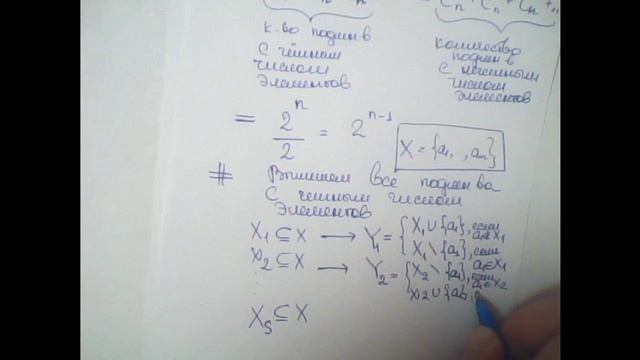 к-во подмн-в
с чётным
числом
элементов
количество
подмн-в
с нечетным
числом
элементов
= 2^n / 2 = 2^{n-1}
X = {a₁, .., aₙ}
# Выпишем все подмн-ва
с четным числом
элементов
X₁ ⊆ X → Y₁ = { X₁ ∪ {a₁}, если a₁ ∉ X₁
X₁ \ {a₁}, если a₁ ∈ X₁
X₂ ⊆ X → Y₂ = { X₂ \ {a₁}, если a₁ ∈ X₂
X₂ ∪ {a₁},
X_S ⊆ X